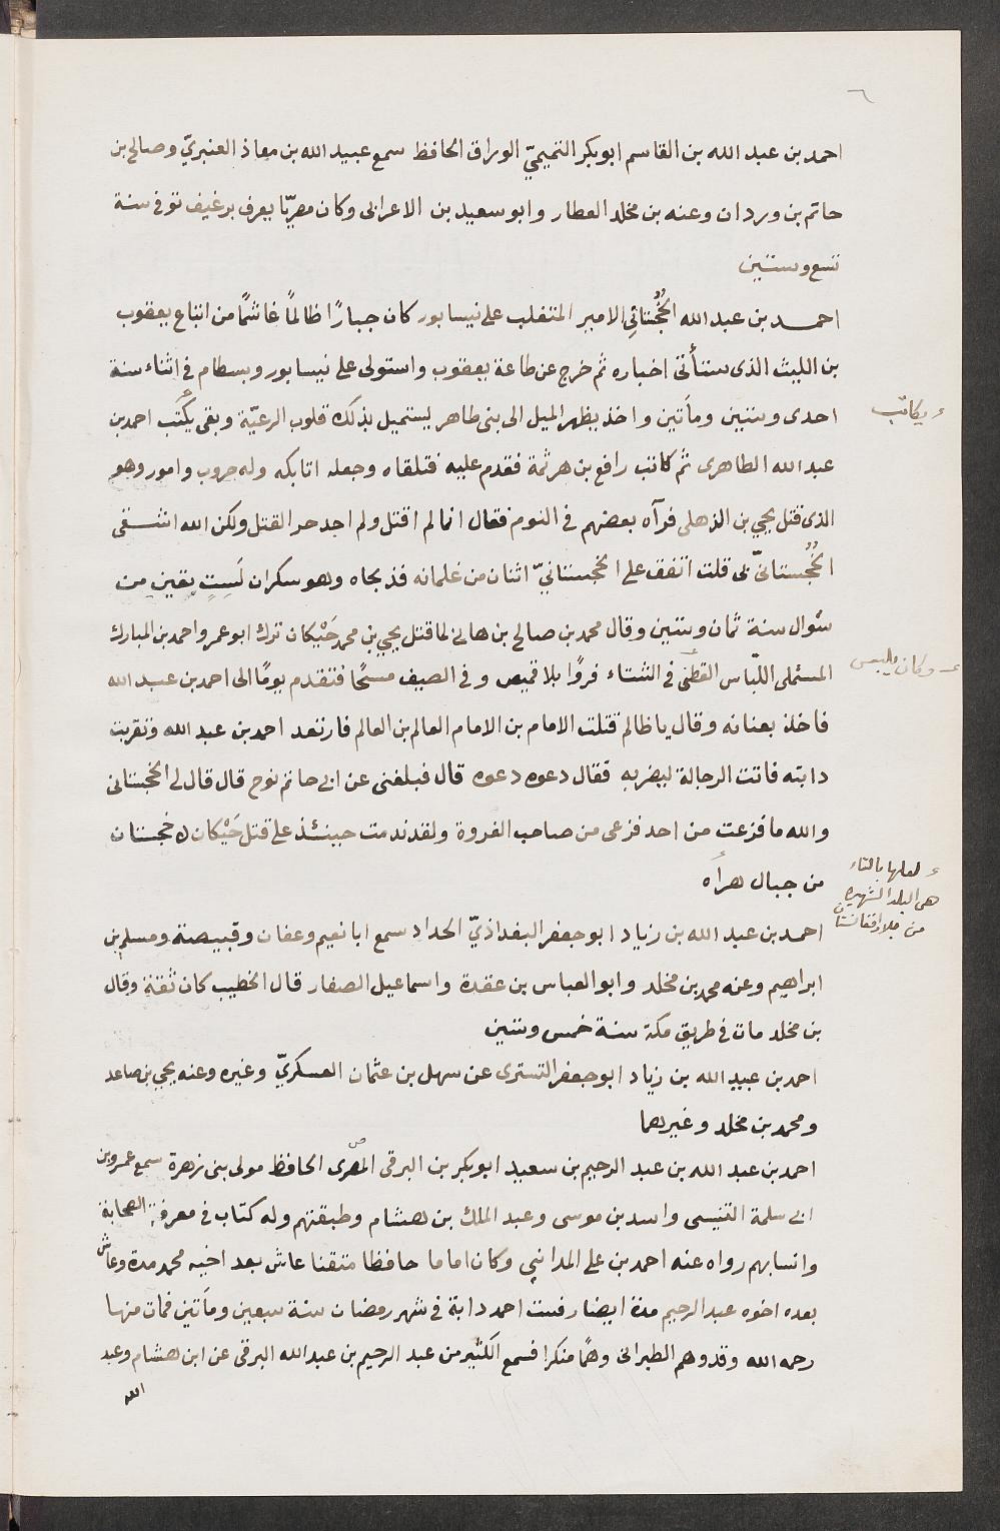 ٦
احمد بن عبد الله بن القاسم ابو بكر التميمىّ الوراق الحافظ سمع عبيد الله بن معاذ العنبرىّ وصالح بن
حاتم بن وردان وعنه بن مخلد العطار وابو سعيد بن الاعرابى وكان مصريّا يعرف برغيف توفى سنة
تسع وستين
احمد بن عبد الله الخُجُستانى الامير المتغلب على نيسابور كان جبارًا ظالمًا غاشمًا من اتباع يعقوب
بن الليث الذى ستأتى اخباره ثم خرج عن طاعة يعقوب واستولى على نيسابور وبسطام فى اثناء سنة
احدى وستين ومأتين واخذ يظهر الميل الى بنى طاهر ليستميل بذلك قلوب الرعيّة وبقى يكتب احمد بن
ويكاتب
عبد الله الطاهرى ثم كاتب رافع بن هرثمة فقدم عليه فتلقاه وجعله اتابكه وله حروب وامور وهو
الذى قتل يحيى بن الذهلى فرآه بعضهم فى النوم فقال انا لم اقتل ولم اجد حر القتل ولكن الله اشقى
الخُجُستانىّ بى قلت اتفق على الخجستانىّ اثنان من غلمانه فذبحاه وهو سكران لَسِتٍ بقين من
شوال سنة ثمان وستين وقال محمد بن صالح بن هانى لما قتل يحيى بن محمد حَيْكان ترك ابو عمرو احمد بن المبارك
المستملى اللباس القطنى فى الشتاء فروًا بلا قميص وفى الصيف مسحًا فتقدم يومًا الى احمد بن عبد الله
وكان يلبس
فاخذ بعنانه وقال يا ظالم قتلت الامام بن الامام العالم بن العالم فارتعد احمد بن عبد الله وتقربت
دابته فاتت الرجالة ليضربه فقال دعوه دعوه قال فبلغنى عن ابى حاتم نوح قال قال لى الخجستانى
والله ما فزعت من احد فزعى من صاحب الفروة ولقد ندمت حينئذ على قتل حَيْكان خجستان
من جبال هراه
لعلها بالتاء
هى البلد الشهيره
من بلاد افغانستان
احمد بن عبد الله بن زياد ابو جعفر البغداذىّ الحداد سمع ابا نعيم وعفان وقبيصة ومسلم بن
ابراهيم وعنه محمد بن مخلد وابو العباس بن عقدة واسماعيل الصفار قال الخطيب كان ثقة وقال
بن مخلد مات فى طريق مكة سنة خمس وستين
احمد بن عبيد الله بن زياد ابو جعفر التسترى عن سهل بن عثمان العسكرىّ وغيره وعنه يحيى بن صاعد
ومحمد بن مخلد وغيرهما
احمد بن عبد الله بن عبد الرحيم بن سعيد ابو بكر بن البرقى المصرى الحافظ مولى بنى زهرة سمع عمرو بن
ابى سلمة التنيسى واسد بن موسى وعبد الملك بن هشام وطبقتهم وله كتاب فى معرفة الصحابة
وانسابهم رواه عنه احمد بن على المدائنى وكان اماما حافظا متقنا عاش بعد اخيه محمد مدة وعاش
بعده اخوه عبد الرحيم مدة ايضا رفست احمد دابة فى شهر رمضان سنة سبعين ومأتين فمات منها
رحمه الله وقد وهم الطبرانى وهمًا منكرا فسمع الكثير من عبد الرحيم بن عبد الله البرقى عن ابن هشام وعبد
الله